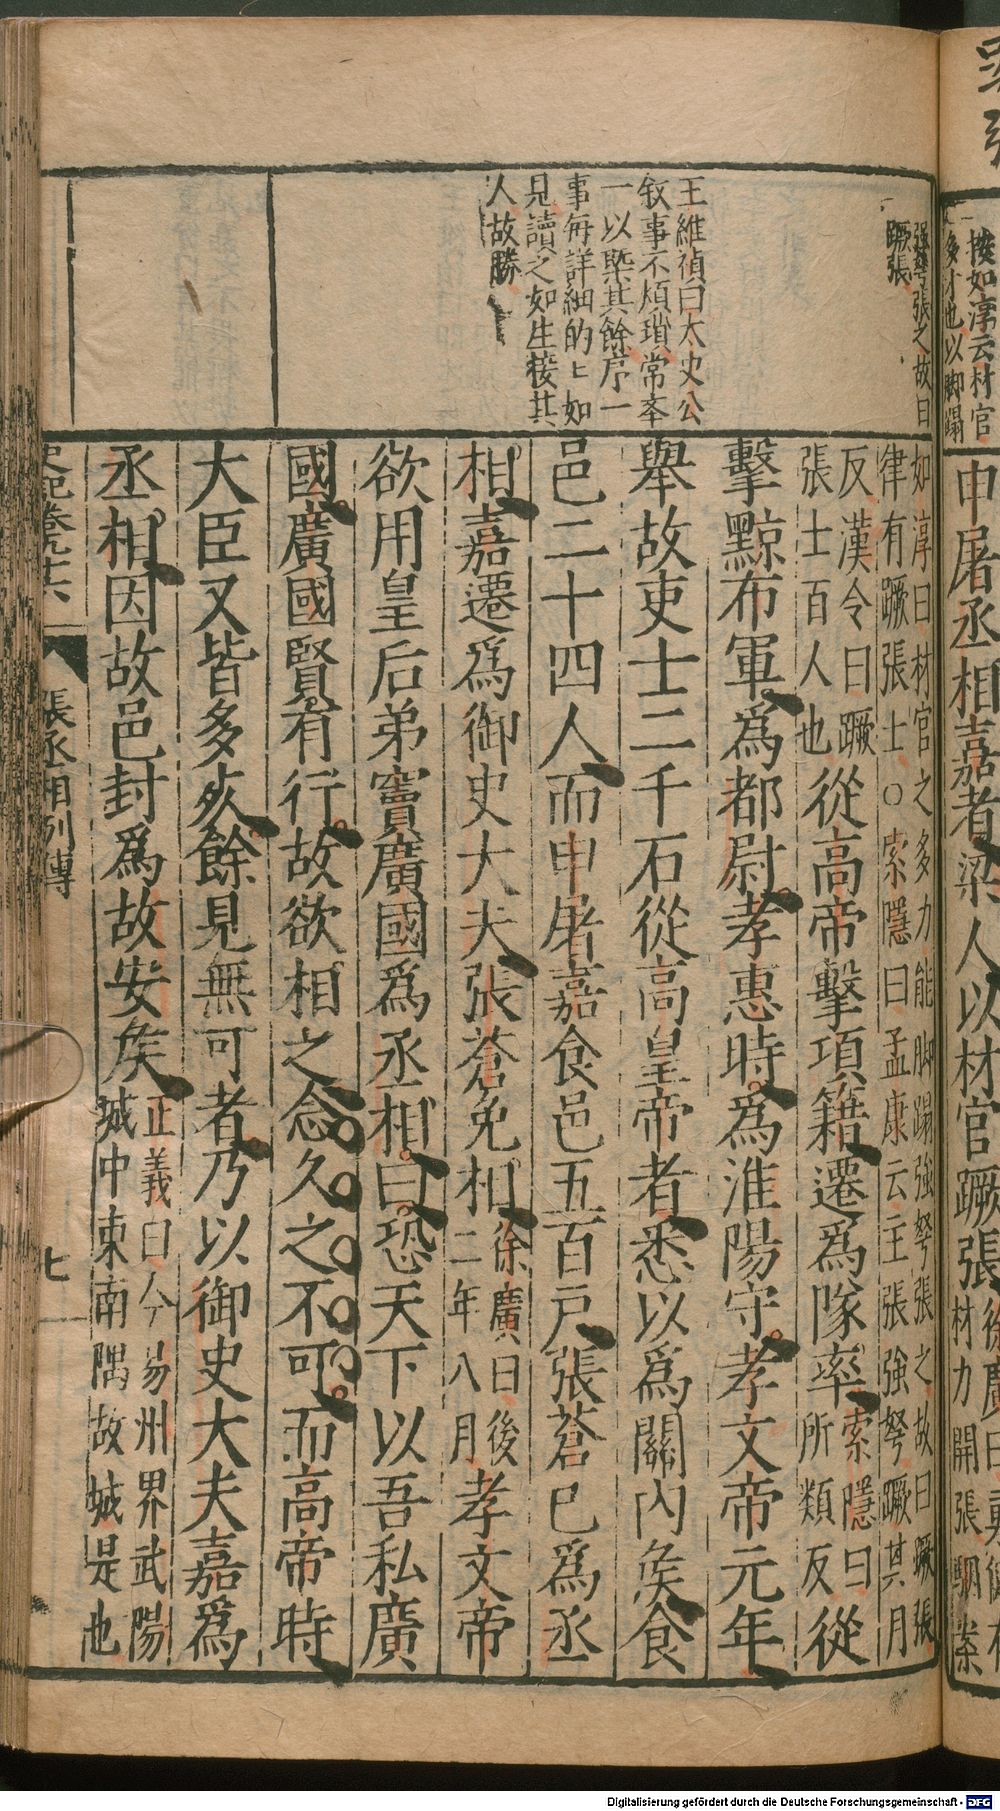 申屠丞相嘉者梁人以材官蹶張
按如淳云材官
多材也以脚蹋
強弩張之故曰
蹶張
王維禎曰太史公
敘事不煩瑣常奉
一以槩其餘序一
事每詳細的〻如
見讀之如生接其
人故勝
如淳曰材官之多力能脚蹋強弩張之故曰蹶張
律有蹶張士○索隱曰孟康云主張強弩蹶其月
反漢令曰蹶
張士百人也
從高帝擊項籍遷爲隊率
索隱曰
所類反
從
擊黥布軍爲都尉孝惠時爲淮陽守孝文帝元年
舉故吏士二千石從高皇帝者悉以爲關內矦食
邑二十四人而申屠嘉食邑五百戶張蒼已爲丞
相嘉遷爲御史大夫張蒼免相
徐廣曰後
二年八月
孝文帝
欲用皇后弟竇廣國爲丞相曰恐天下以吾私廣
國廣國賢有行故欲相之念久之不可而高帝時
大臣又皆多死餘見無可者乃以御史大夫嘉爲
丞相因故邑封爲故安矦
正義曰今易州界武陽
城中東南隅故城是也
史記卷九十六
張丞相列傳
七
Digitalisierung gefördert durch die Deutsche Forschungsgemeinschaft - DFG